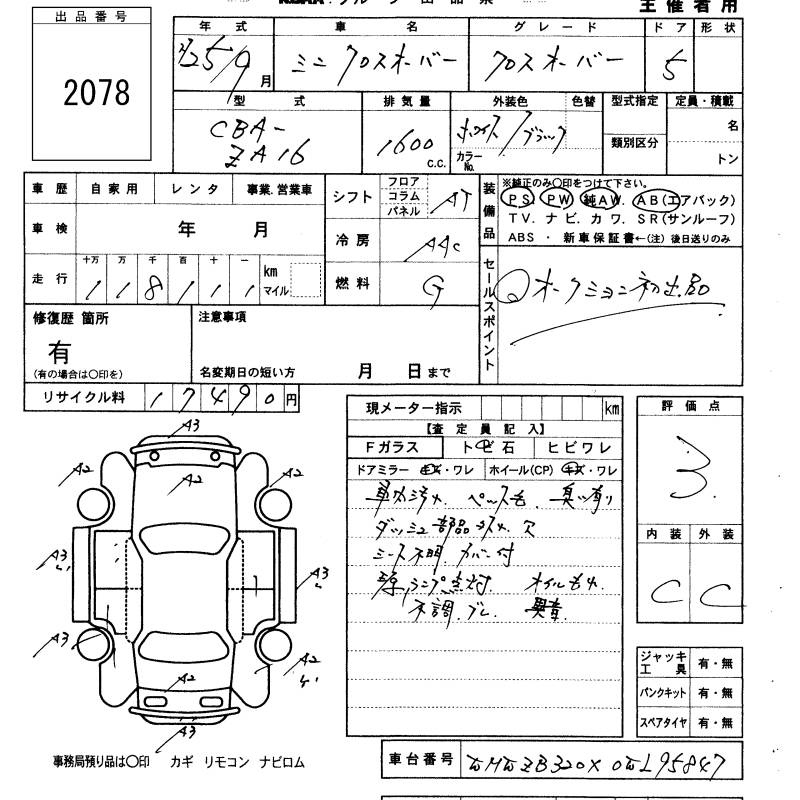 主催者用
出品番号
2078
年式 車名 グレード ドア 形状
H25/9月 ミニ クロスオーバー クロスオーバー 5
型式 排気量 外装色 色替 型式指定 定員・積載
CBA-ZA16 1600 c.c. ホワイト/ブラック カラーNo. 類別区分 名 トン
車歴 自家用 レンタ 事業.営業車
シフト フロア コラム パネル AT
装備品
※純正のみ〇印をつけて下さい。
PS PW 純AW. AB(エアバック)
TV. ナビ. カワ. SR(サンルーフ)
ABS ・ 新車保証書←(注) 後日送りのみ
車検 年 月
冷房 AAC
走行 十万 万 千 百 十 一
118111 km マイル
燃料 G
セールスポイント
オークション初出品
修復歴 箇所
有
(有の場合は〇印を)
注意事項
名変期日の短い方 月 日まで
リサイクル料 17490 円
現メーター指示 km
【査定員記入】
Fガラス トビ石 ヒビワレ
ドアミラー キズ・ワレ ホイール(CP) キズ・ワレ
車内汚れ. ペット毛. 臭い有り
ダッシュ部品 穴
シート不明 カバー付
ランプ点灯. オイルもれ.
不調. ブレ. 異音.
評価点
3
内装 外装
C C
A3
A2
A2
A2
A3
A3
A3
A2
A2
A3
ジャッキ工具 有・無
パンクキット 有・無
スペアタイヤ 有・無
事務局預り品は〇印 カギ リモコン ナビロム
車台番号